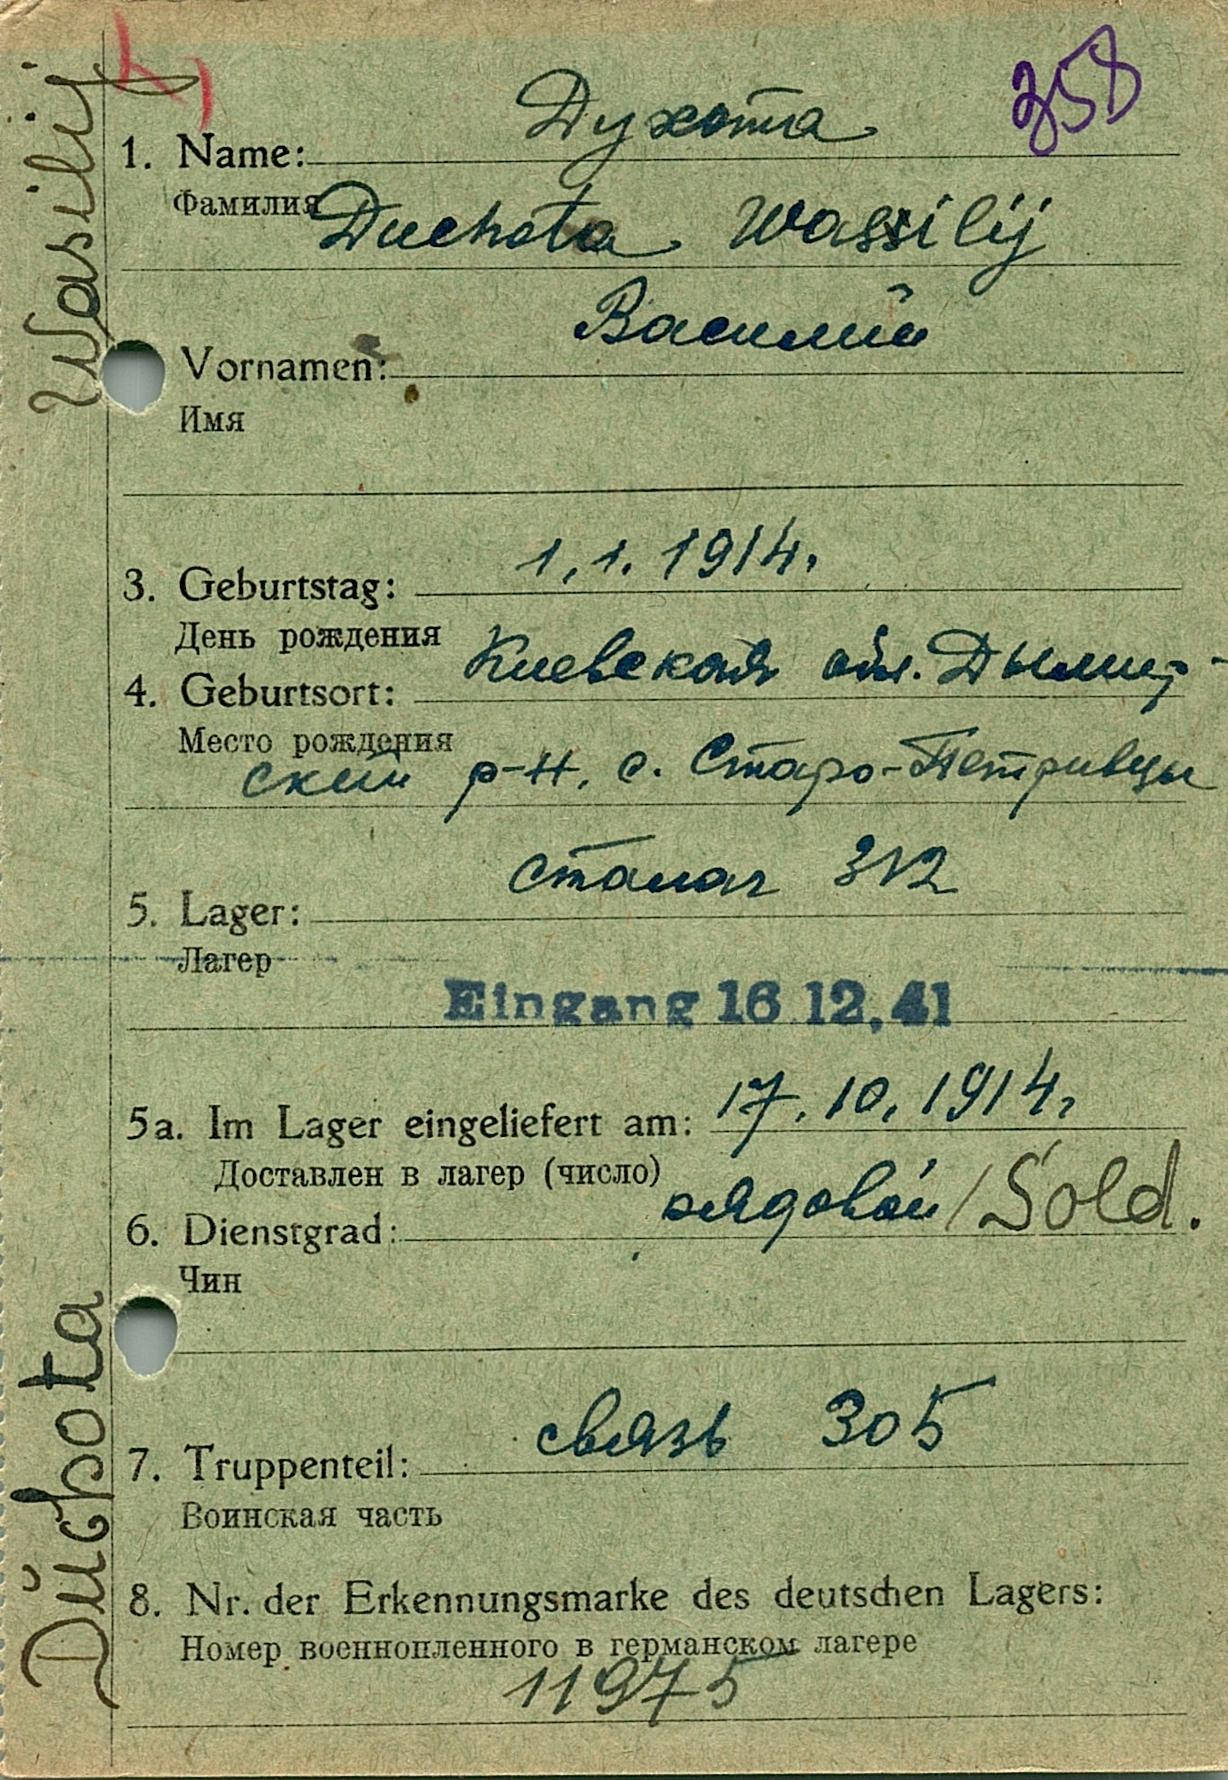 358
Духота
1. Name:
Фамилия
Duchota Wassilij
Василий
Vornamen:
Имя
1,1. 1914.
3. Geburtstag:
День рождения
Киевская обл. Дымер-
4. Geburtsort:
Место рождения
ский р-н, с. Старо-Петривцы
сталаг 312
5. Lager:
Лагер
Eingang 16 12.41
5a. Im Lager eingeliefert am: 17.10.1914.
Доставлен в лагер (число)
рядовой / Sold.
6. Dienstgrad:
Чин
связь 305
7. Truppenteil:
Воинская часть
8. Nr. der Erkennungsmarke des deutschen Lagers:
Номер военнопленного в германском лагере
11975
Duchota Wasilij